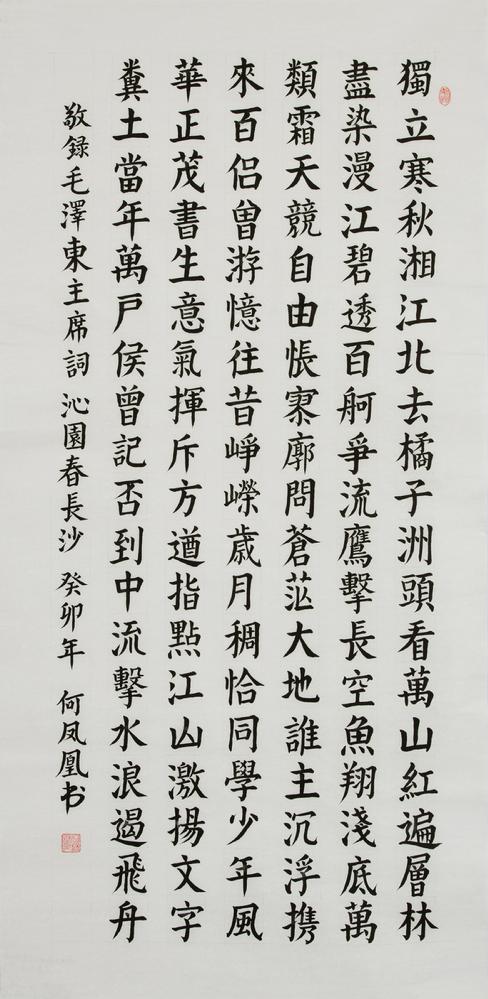 獨立寒秋湘江北去橘子洲頭看萬山紅遍層林
盡染漫江碧透百舸爭流鷹擊長空魚翔淺底萬
類霜天競自由悵寥廓問蒼茫大地誰主沉浮攜
來百侶曾游憶往昔崢嶸歲月稠恰同學少年風
華正茂書生意氣揮斥方遒指點江山激揚文字
糞土當年萬戶侯曾記否到中流擊水浪遏飛舟
敬録毛澤東主席詞 沁園春長沙 癸卯年 何凤凰书